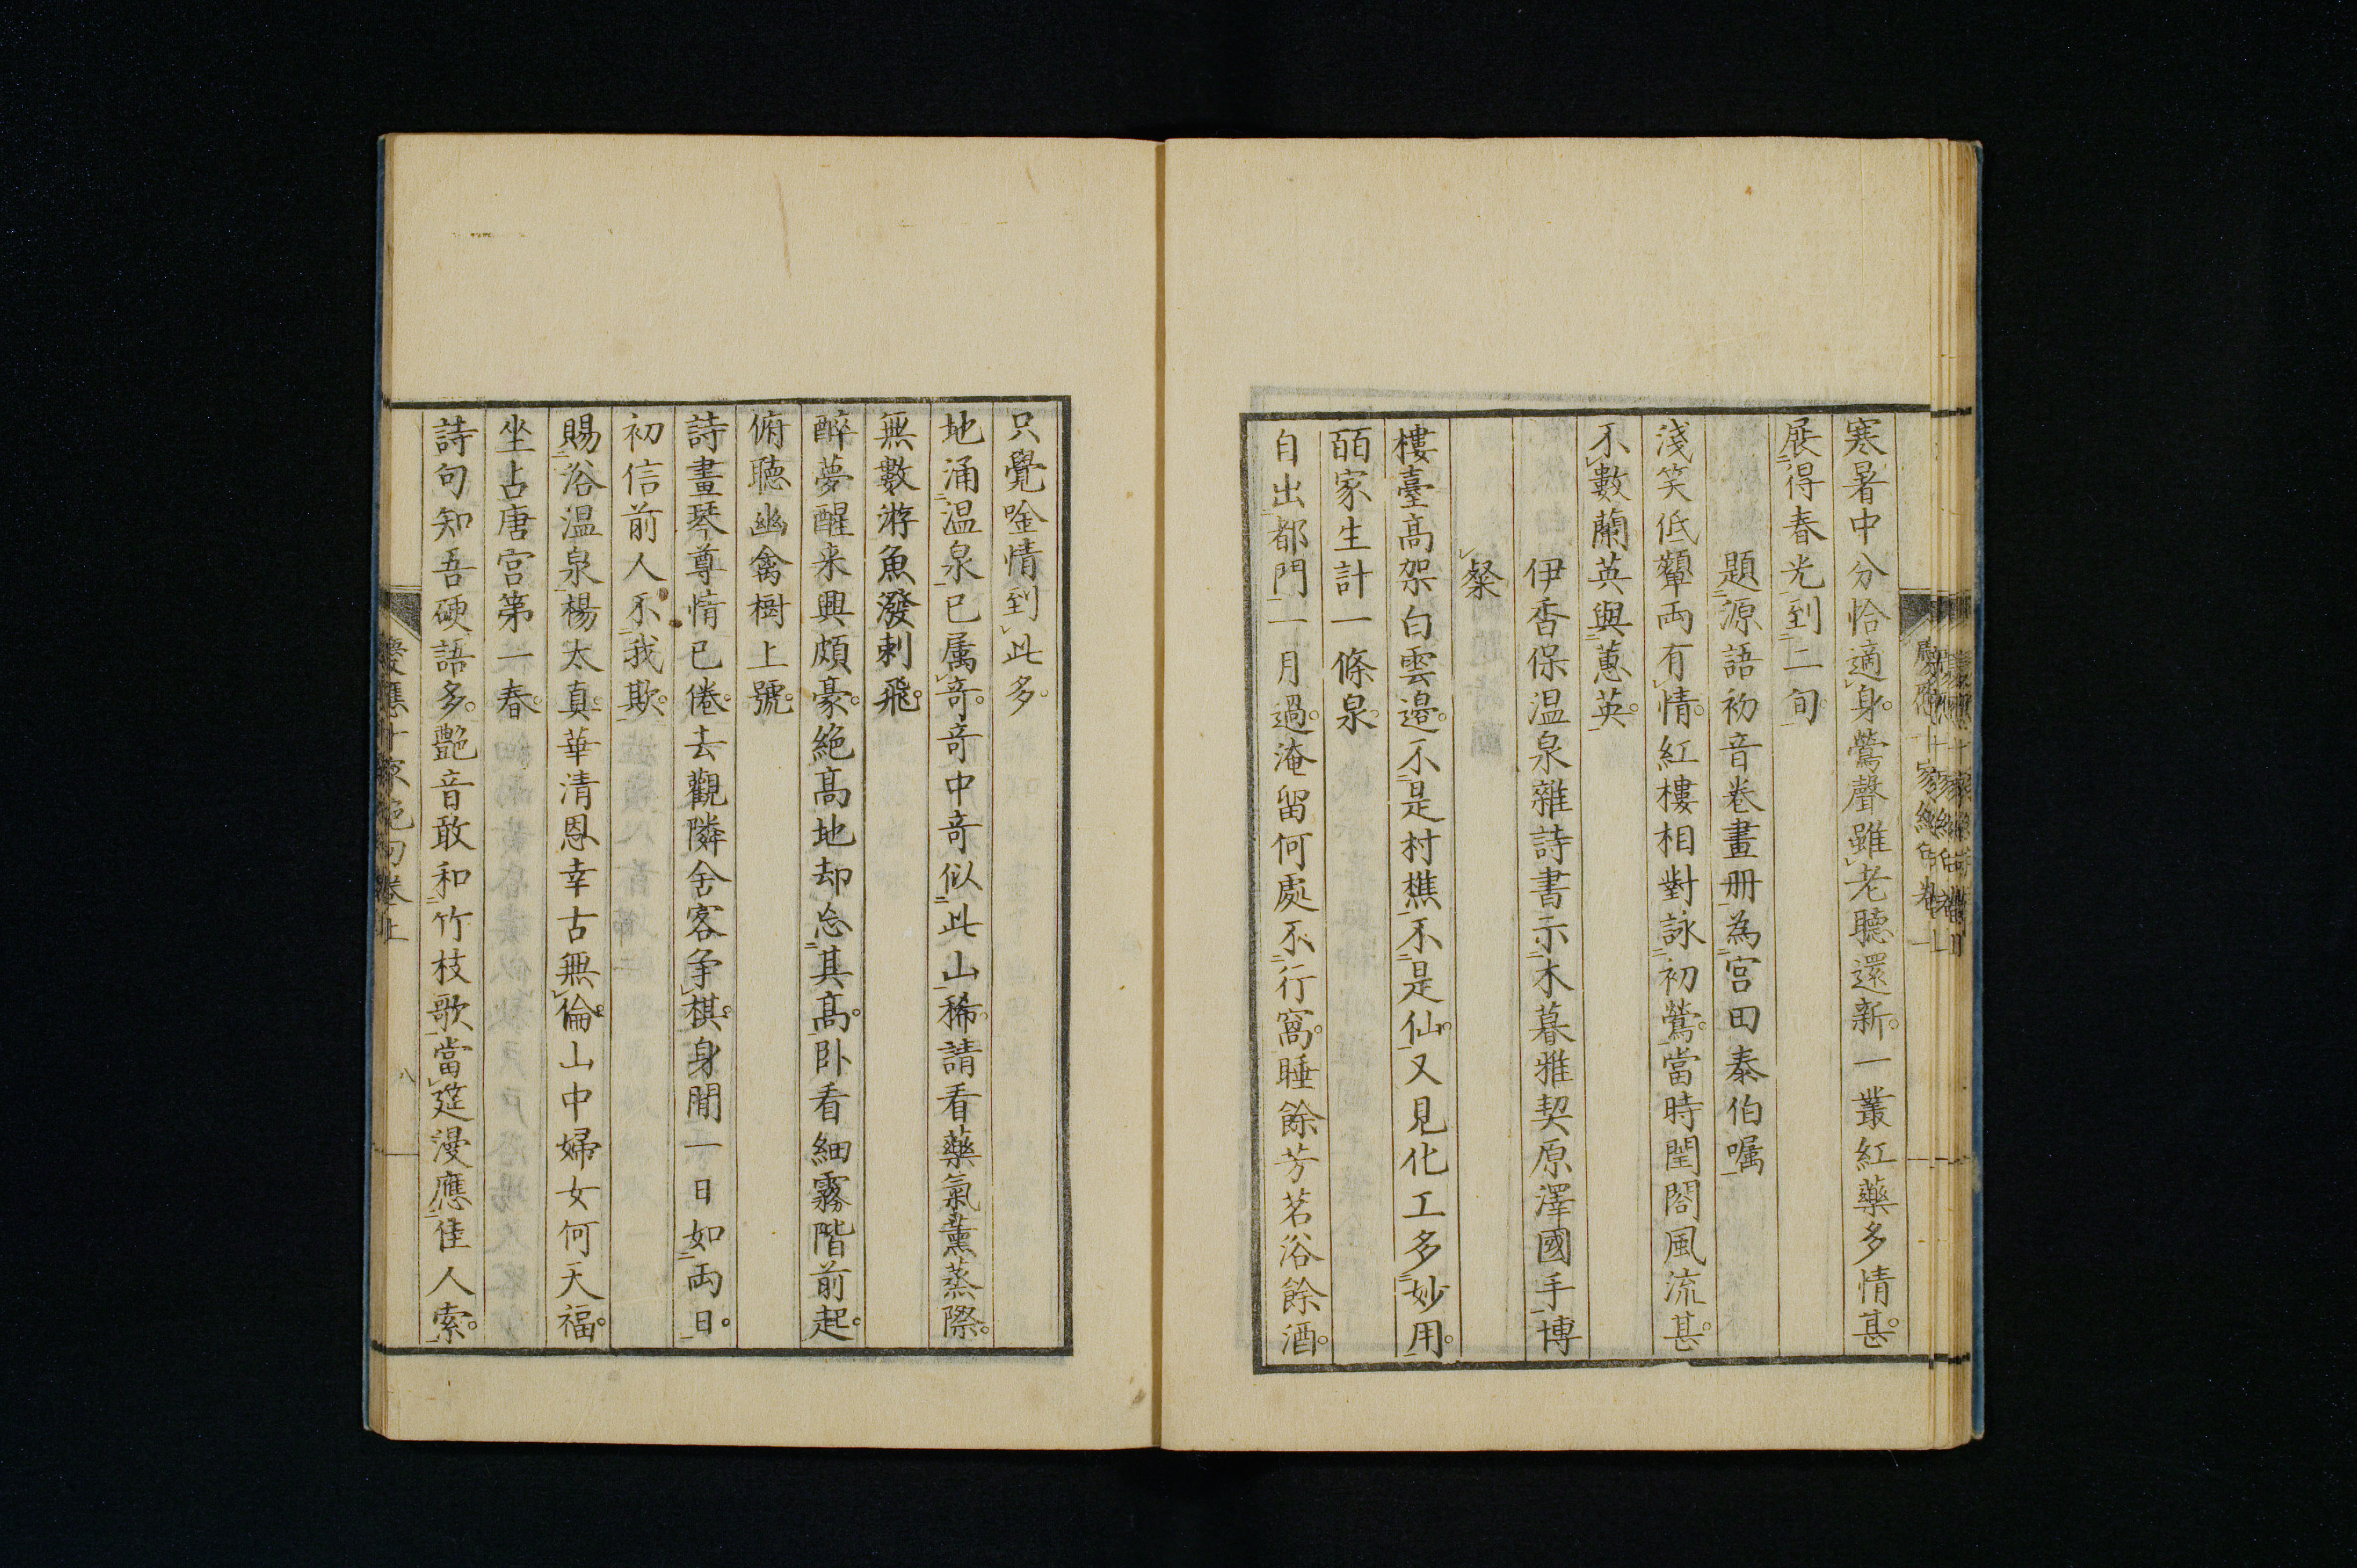 寒暑中分恰適身。鶯聲雖老聽還新。一叢紅藥多情甚。
展得春光到二旬
題源語初音卷畫冊為宮田泰伯囑
淺笑低顰両有情。紅樓相對詠初鶯。當時閨閤風流甚。
不數蘭英與蕙英。
伊香保温泉雜詩書示木暮雅契原澤國手博
粲
樓臺高架白雲邉。不是村樵不是仙。又見化工多妙用。
百家生計一條泉。
自出都門一月過。淹留何處不行窩。睡餘芳茗浴餘酒。
只覺唫情到此多。
地涌温泉已属竒。竒中竒似此山稀。請看藥氣薰蒸際。
無數游魚潑剌飛。
醉夢醒来興頗豪。絶髙地却忘其髙。卧看細霧階前起。
俯聴幽禽樹上號。
詩畫琴尊情已倦。去觀隣舍客争棋。身閒一日如両日。
初信前人不我欺。
賜浴温泉楊太真。華清恩幸古無倫。山中婦女何天福。
坐占唐宮第一春。
詩句知吾硬語多。艶音敢和竹枝歌。當筵漫應佳人索。
慶應十家絶句卷上
八